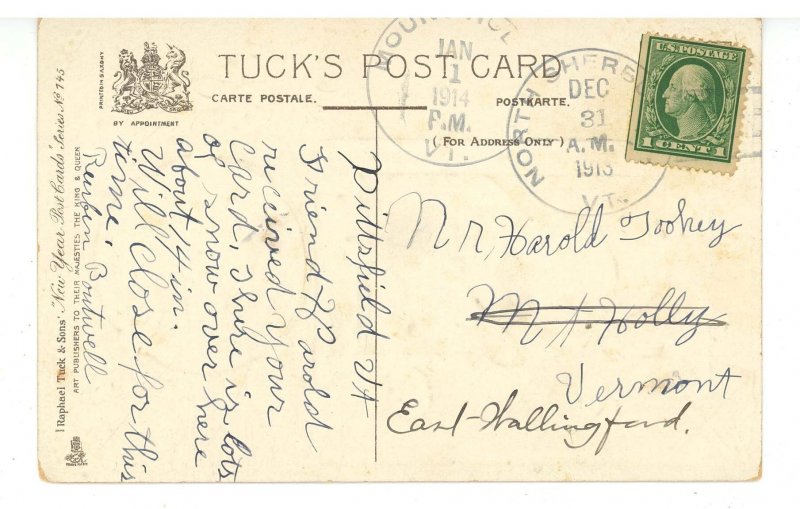 TUCK'S POST CARD
CARTE POSTALE.
POSTKARTE.
( FOR ADDRESS ONLY )
PRINTED IN SAXONY
BY APPOINTMENT
Raphael Tuck & Sons' "New Year Post Cards" Series No 745
ART PUBLISHERS TO THEIR MAJESTIES THE KING & QUEEN
JAN
1
1914
P.M.
VT.
NORTH SHERB
DEC
31
A.M.
1913
VT.
U.S. POSTAGE
1 CENT 1
Pittsfild Vt
Friend Harold
recieved your
Card, thire is lots
of snow over here
about 14 in.
Will close for this
time
Reubin Boutwell
Mr, Harold Tookey
Mt. Holly
Vermont
East Wallingford.